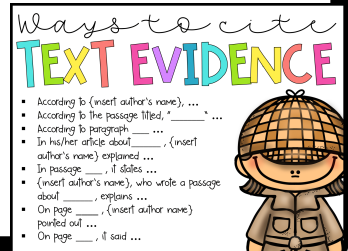 Ways to cite
TEXT EVIDENCE
▪ According to {insert author's name}, ...
▪ According to the passage titled, "_______" ...
▪ According to paragraph ___ ...
▪ In his/her article about______ , {insert
author's name} explained ...
▪ In passage ___ , it states ...
▪ {insert author's name}, who wrote a passage
about ______ , explains ...
▪ On page ____ , {insert author name}
pointed out ...
▪ On page ___ , it said ...